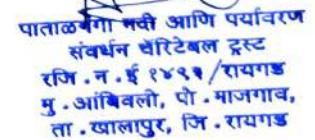 पाताळगंगा नदी आणि पर्यावरण
संवर्धन चॅरिटेबल ट्रस्ट
रजि . न . ई १४९९ /रायगड
मु . आंबिवली, पो . माजगाव,
ता . खालापुर, जि . रायगड